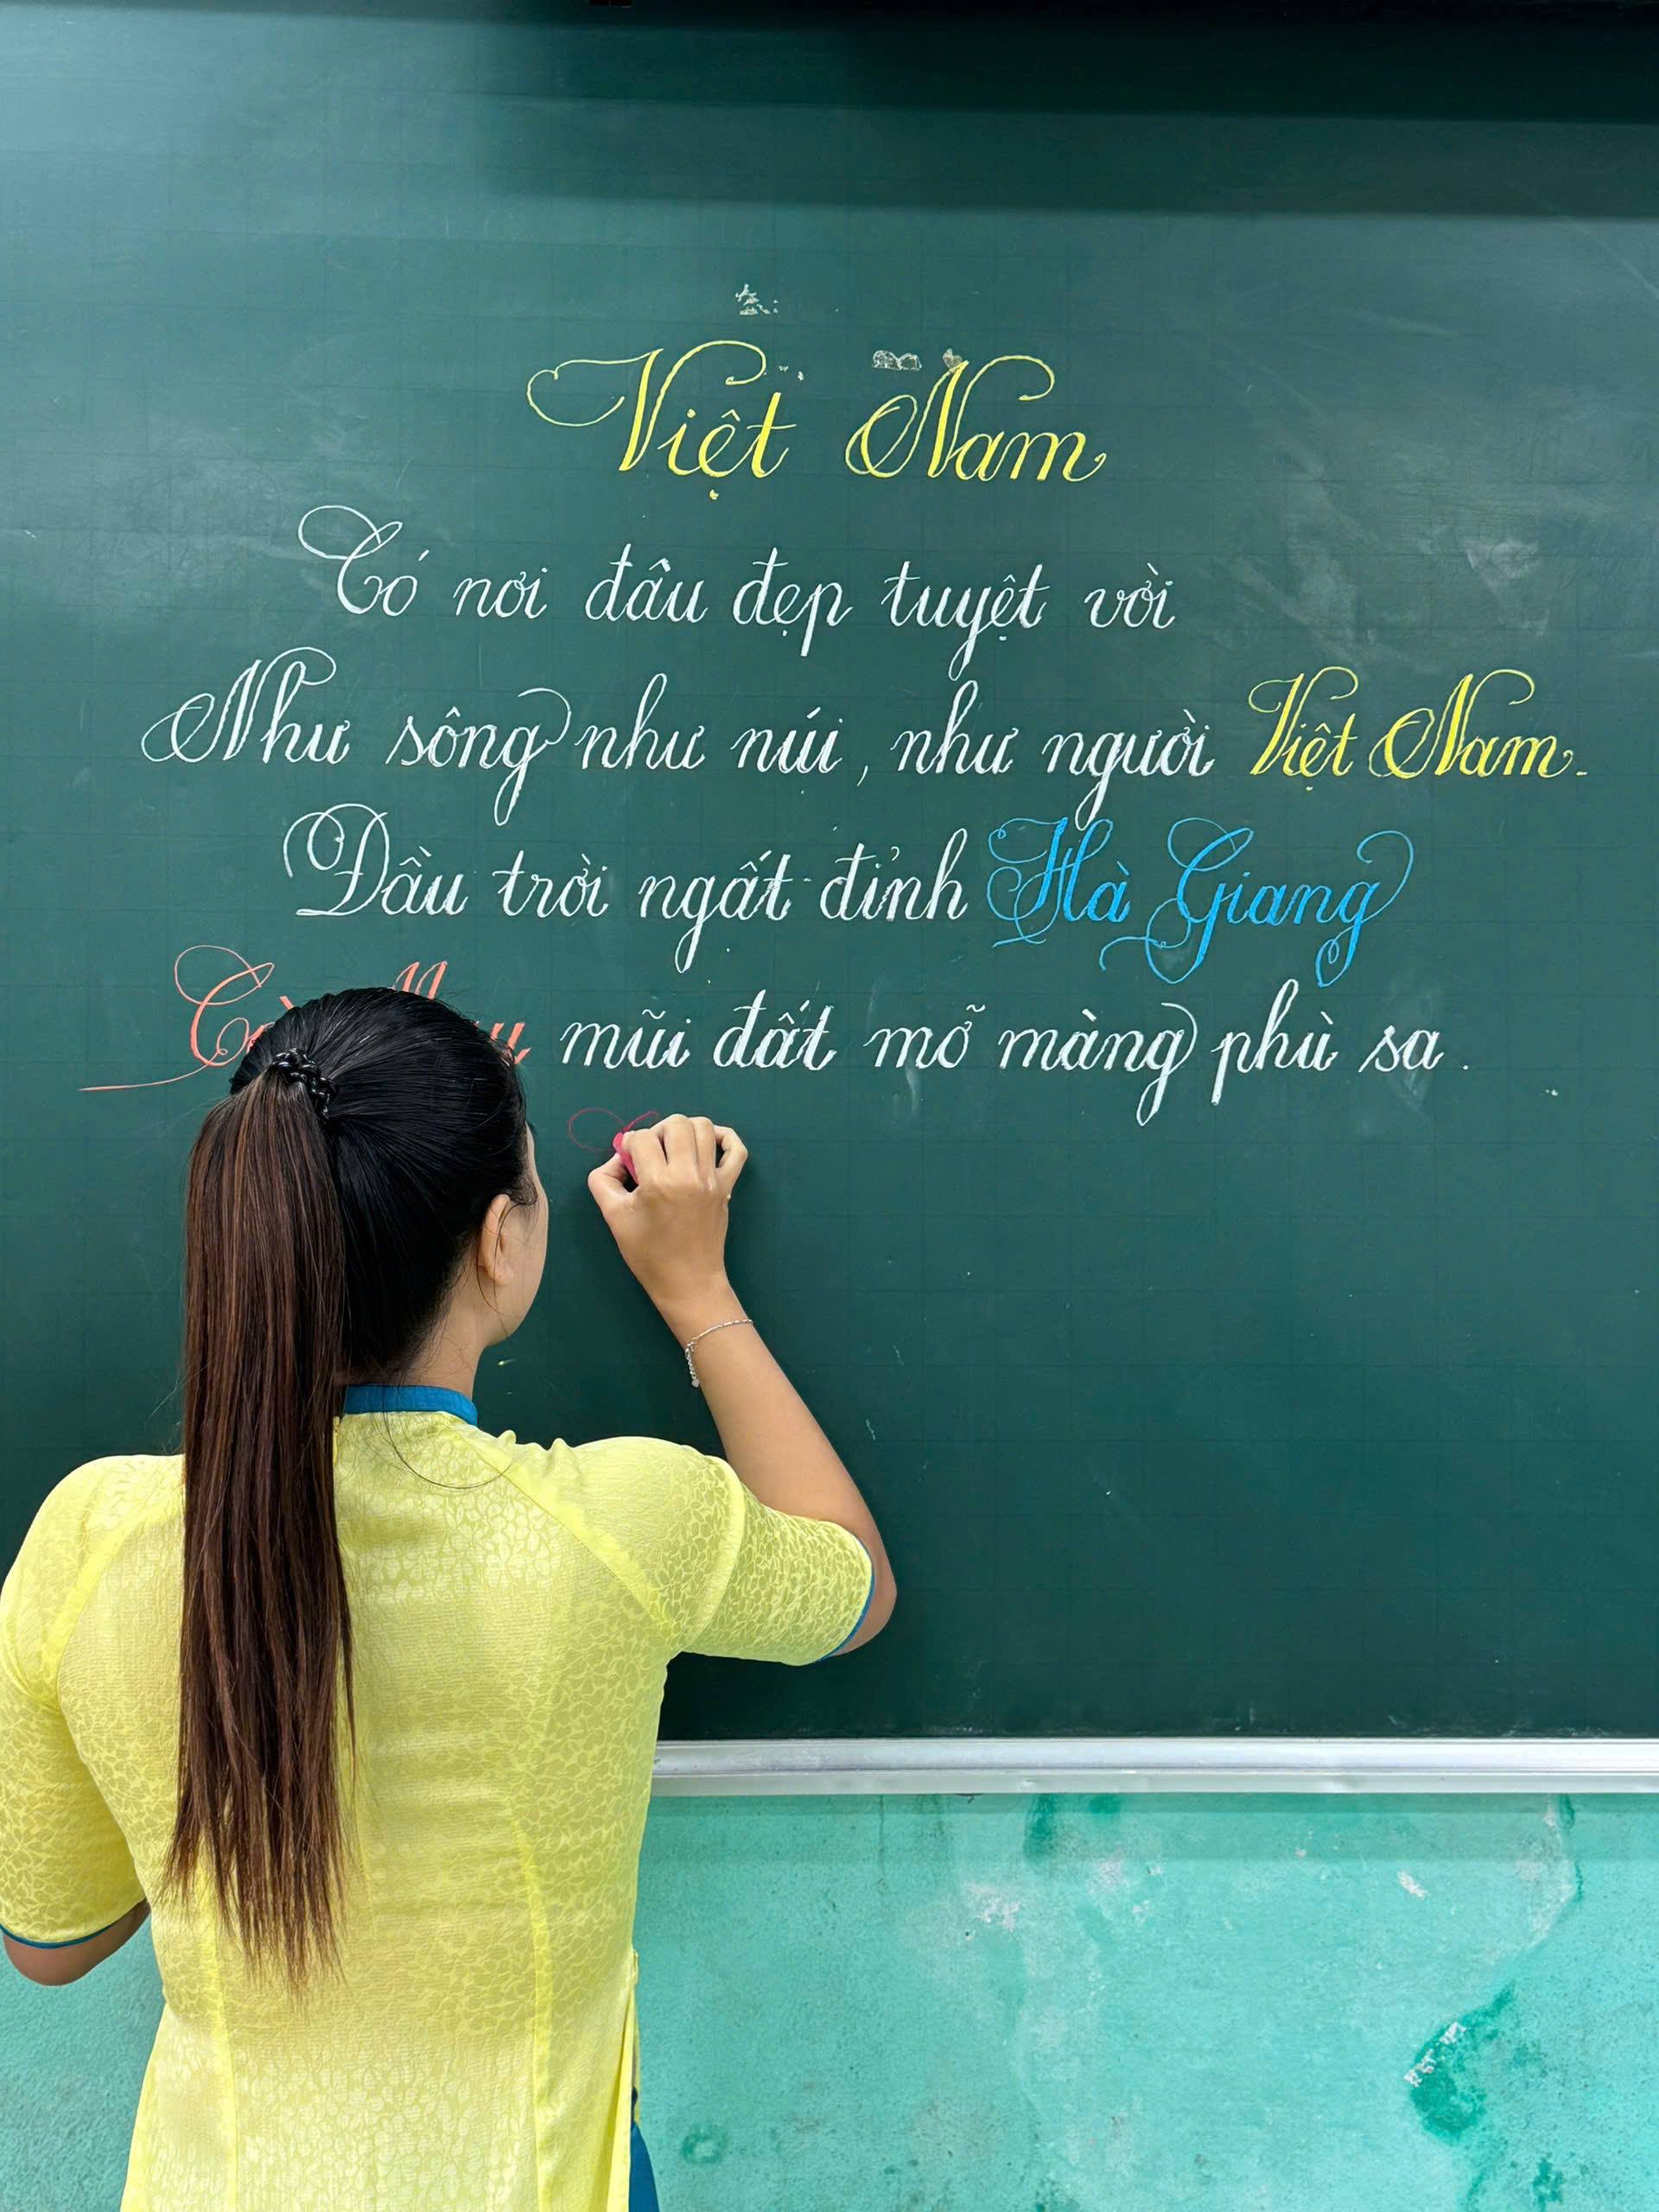 Việt Nam
Có nơi đâu đẹp tuyệt vời
Như sông như núi, như người Việt Nam.
Đầu trời ngất đỉnh Hà Giang
mũi đất mỡ màng phù sa.